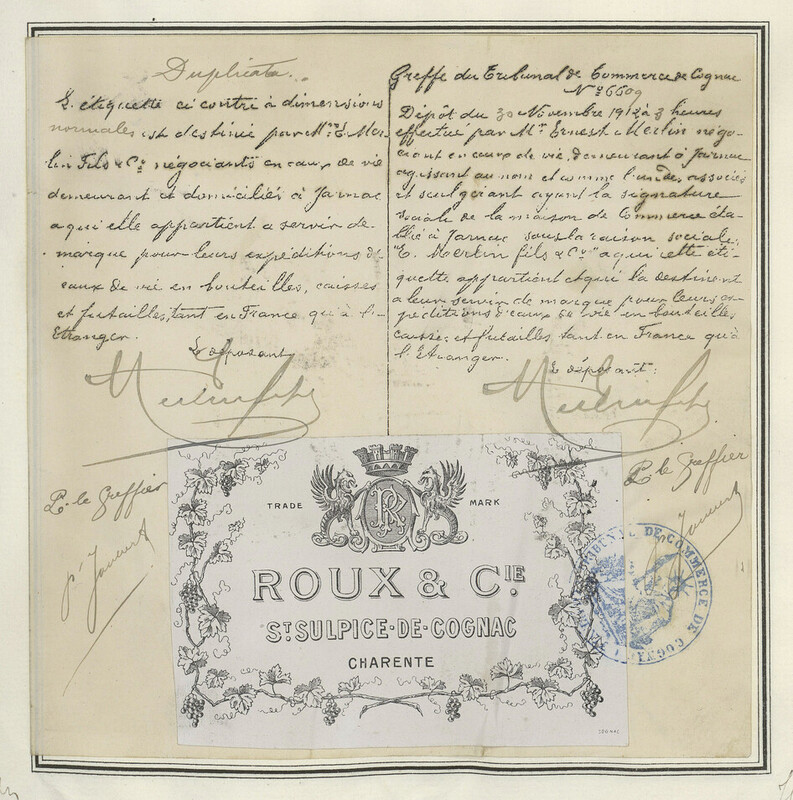 Duplicata.
L'étiquette ci contre à dimensions
normales est destinée par Mrs E. Mer-
lin Fils & Cie négociants en eaux de vie
demeurant et domiciliés à Jarnac
a qui elle appartient a servir de
marque pour leurs expéditions d'
eaux de vie en bouteilles, caisses
et futailles, tant en France qu'à l'-
Etranger.
Le déposant
P. le Greffier
Greffe du Tribunal de Commerce de Cognac
No 6609
Dépôt du 30 Novembre 1912 à 3 heures
effectué par Mr Ernest Merlin négo-
ciant en eaux de vie, demeurant à Jarnac
agissant au nom et comme l'un des associés
et seul gérant ayant la signature
sociale de la maison de Commerce éta-
blie à Jarnac sous la raison sociale
"E. Merlin fils & Cie" a qui cette éti-
quette appartient et qui la destinent
a leur servir de marque pour leurs ex-
péditions d'eaux de vie en bouteilles
caisses et futailles tant en France qu'à
l'Etranger.
Le déposant:
P. le Greffier
TRADE MARK
RR
ROUX & CIE.
ST SULPICE-DE-COGNAC
CHARENTE
TRIBUNAL DE COMMERCE DE COGNAC